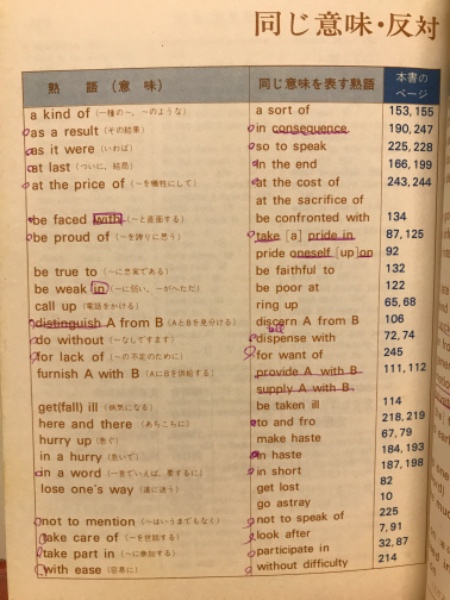 同じ意味・反対
熟語(意味) 同じ意味を表す熟語 本書のページ
a kind of (一種の〜、〜のような) a sort of 153, 155
as a result (その結果) in consequence 190, 247
as it were (いわば) so to speak 225, 228
at last (ついに、結局) in the end 166, 199
at the price of (〜を犠牲にして) at the cost of 243, 244
at the sacrifice of
be faced with (〜と直面する) be confronted with 134
be proud of (〜を誇りに思う) take [a] pride in 87, 125
pride oneself [up]on 92
be true to (〜に忠実である) be faithful to 132
be weak in (〜に弱い、〜がへただ) be poor at 122
call up (電話をかける) ring up 65, 68
distinguish A from B (AとBを見分ける) discern A from B 106
do without (〜なしですます) dispense with 72, 74
for lack of (〜の不足のために) for want of 245
furnish A with B (AにBを供給する) provide A with B 111, 112
supply A with B
get(fall) ill (病気になる) be taken ill 114
here and there (あちこちに) to and fro 218, 219
hurry up (急ぐ) make haste 67, 79
in a hurry (急いで) in haste 184, 193
in a word (一言でいえば、要するに) in short 187, 198
lose one's way (道に迷う) get lost 82
go astray 10
not to mention (〜はいうまでもなく) not to speak of 225
take care of (〜を世話する) look after 7, 91
take part in (〜に参加する) participate in 32, 87
with ease (容易に) without difficulty 214